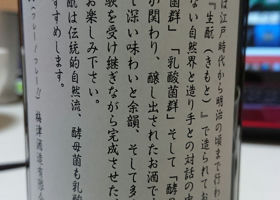 は江戸時代から明治の頃まで行わ
『生酛（きもと）』で造られてお
ない自然界と造り手との対話の中
菌群」「乳酸菌群」そして「酵母
が関わり、醸し出されたお酒で
て深い味わいと余韻、そして多
お楽しみ下さい。
験を受け継ぎながら完成させた
酛は伝統的自然流、酵母菌も乳酸
すすめします。
梅津酒造有限会